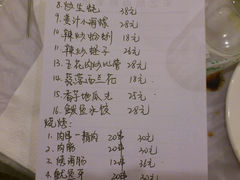 8. 红生蚝 38元
9. 姜汁小海螺 28元
10. 辣炒蛤蜊 18元
11. 辣炒蛏子 26元
13. 五花肉炒
14. 葱蓉西兰花 18元
15. 香芋地瓜丸 25元
16. 鲅鱼水饺 28元
烧烤:
1. 肉串-精肉 20串 30元
2. 肉筋 20串 30元
3. 烤海肠 12串 36元
4. 鱿鱼芽 20串 30元